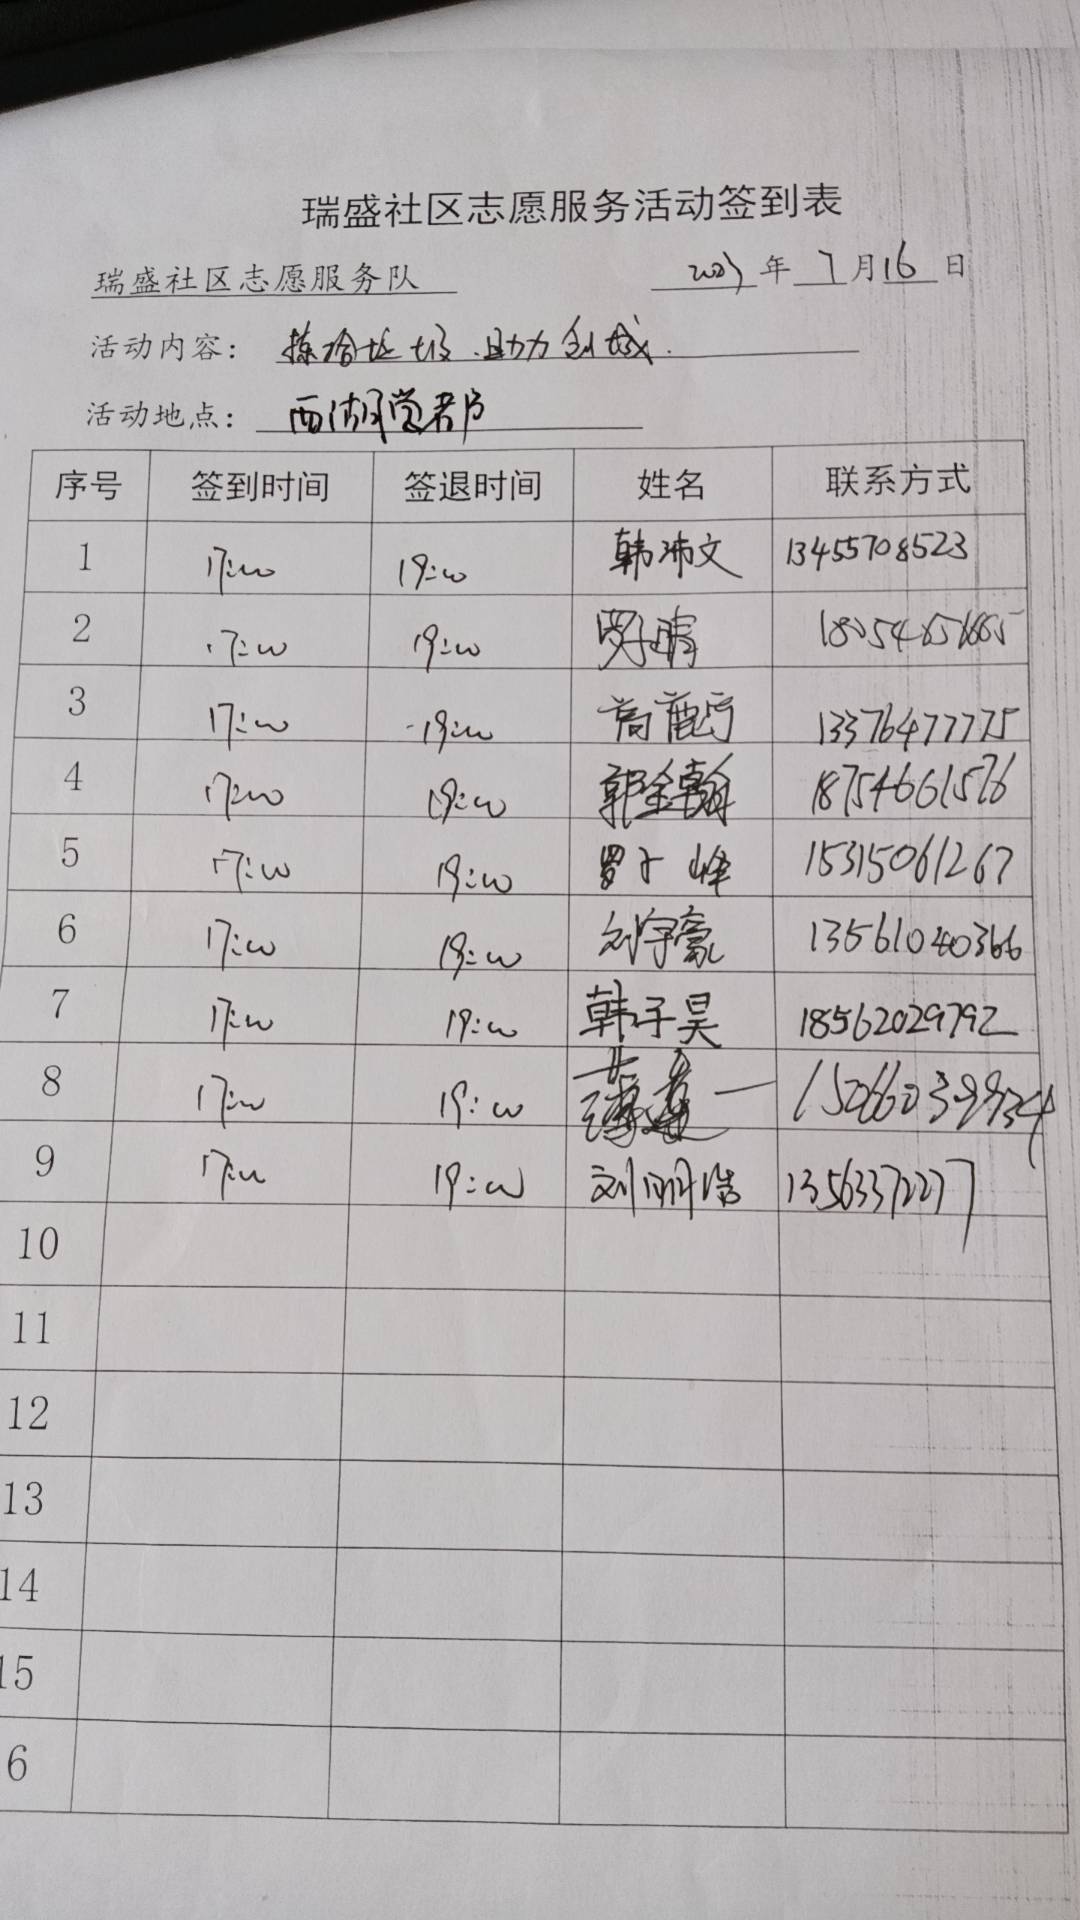 瑞盛社区志愿服务活动签到表
瑞盛社区志愿服务队 2023年 7月16日
活动内容: 捡拾垃圾.助力创城.
活动地点: 西湖党老片
序号 签到时间 签退时间 姓名 联系方式
1 17:00 19:00 韩沛文 13455708523
2 17:00 19:00 罗子晴
3 17:00 19:00 13376477775
4 17:00 19:00 郭金翰 18754661576
5 17:00 19:00 罗子峰 15315061267
6 17:00 19:00 刘宇豪 13561040366
7 17:00 19:00 韩子昊 18562029792
8 17:00 19:00 15066039934
9 17:00 19:00 刘明浩 13563372277
10
11
12
13
14
15
6